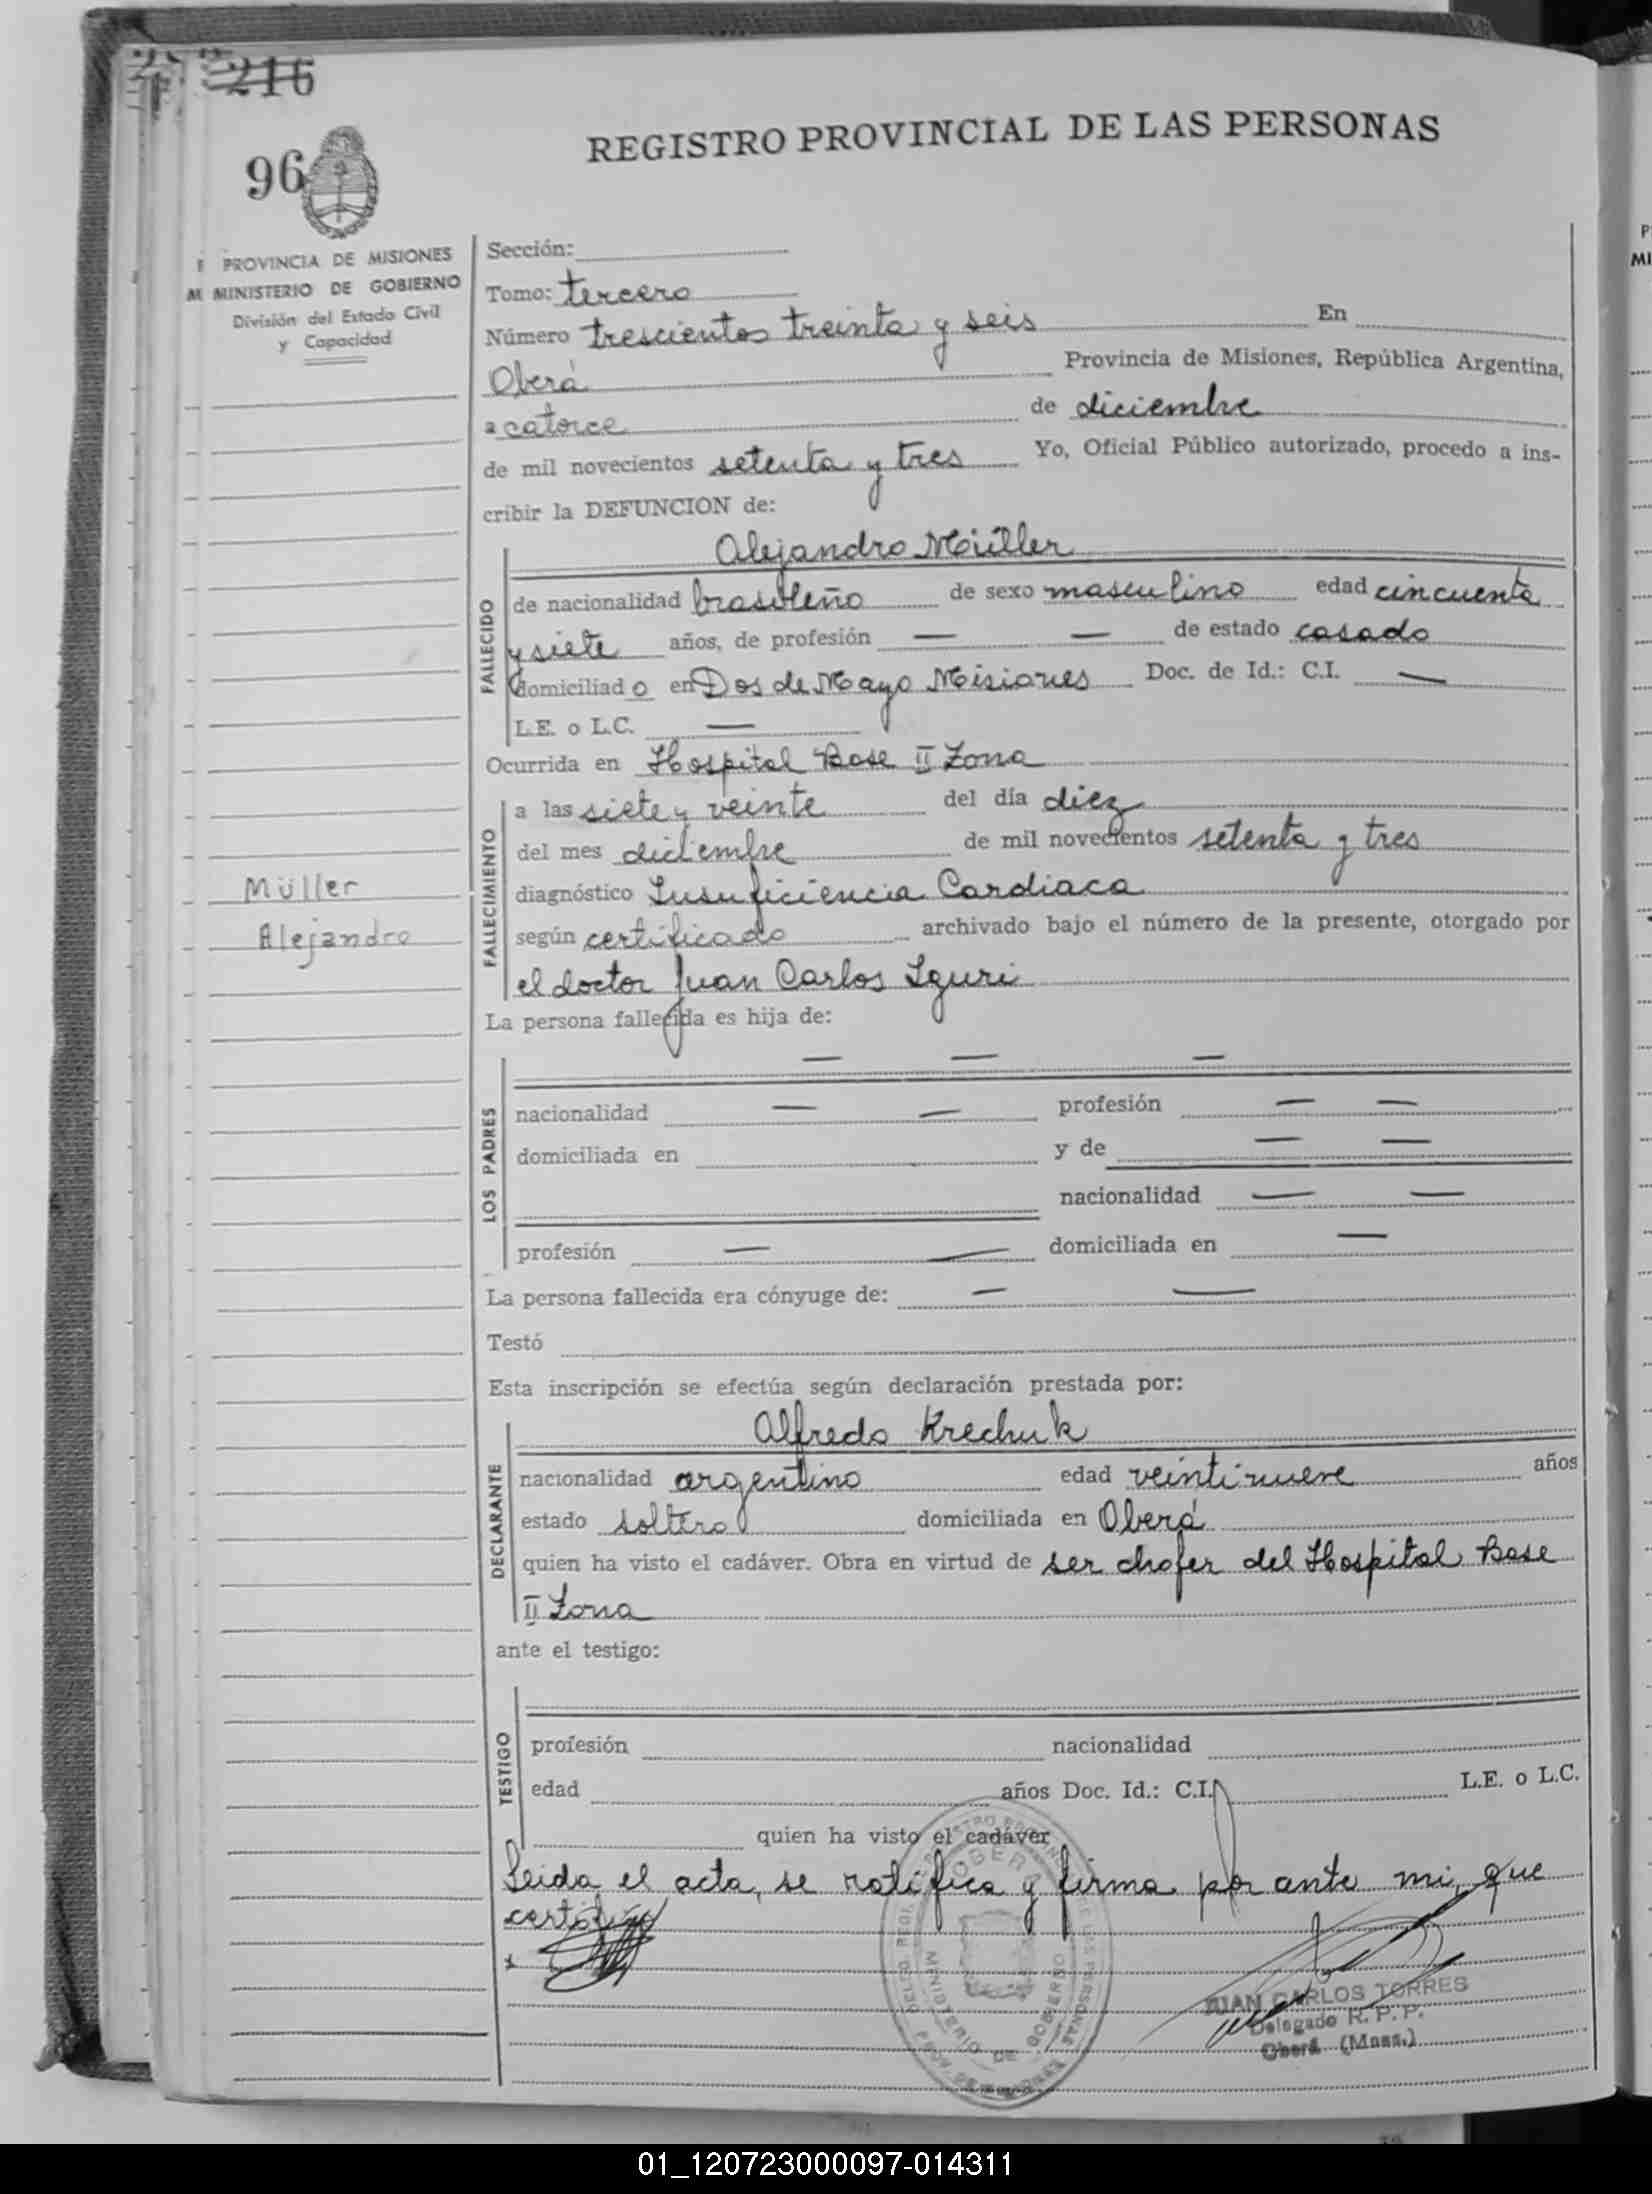 216
96
REGISTRO PROVINCIAL DE LAS PERSONAS
PROVINCIA DE MISIONES
MINISTERIO DE GOBIERNO
División del Estado Civil
y Capacidad
Müller
Alejandro
Sección:
Tomo: tercero
Número trescientos treinta y seis En
Oberá Provincia de Misiones, República Argentina,
a catorce de diciembre
de mil novecientos setenta y tres Yo, Oficial Público autorizado, procedo a ins-
cribir la DEFUNCION de:
FALLECIDO
Alejandro Müller
de nacionalidad brasileño de sexo masculino edad cincuenta
y siete años, de profesión — — de estado casado
domiciliado en Dos de Mayo Misiones Doc. de Id.: C.I. —
L.E. o L.C. —
Ocurrida en Hospital Base II Zona
FALLECIMIENTO
a las siete y veinte del día diez
del mes diciembre de mil novecientos setenta y tres
diagnóstico Insuficiencia Cardiaca
según certificado archivado bajo el número de la presente, otorgado por
el doctor Juan Carlos Iguri
La persona fallecida es hija de:
LOS PADRES
— — —
nacionalidad — — profesión — —
domiciliada en y de — —
nacionalidad — —
profesión — — domiciliada en —
La persona fallecida era cónyuge de: — —
Testó
Esta inscripción se efectúa según declaración prestada por:
DECLARANTE
Alfredo Krechuk
nacionalidad argentino edad veintinueve años
estado soltero domiciliada en Oberá
quien ha visto el cadáver. Obra en virtud de ser chofer del Hospital Base
II Zona
ante el testigo:
TESTIGO
profesión nacionalidad
edad años Doc. Id.: C.I. L.E. o L.C.
quien ha visto el cadáver
Leida el acta, se ratifica y firma por ante mi, que
certifico
OBERA
MINISTERIO DE GOBIERNO
JUAN CARLOS TORRES
Delegado R. P. P.
Oberá (Mnes.)
01_120723000097-014311